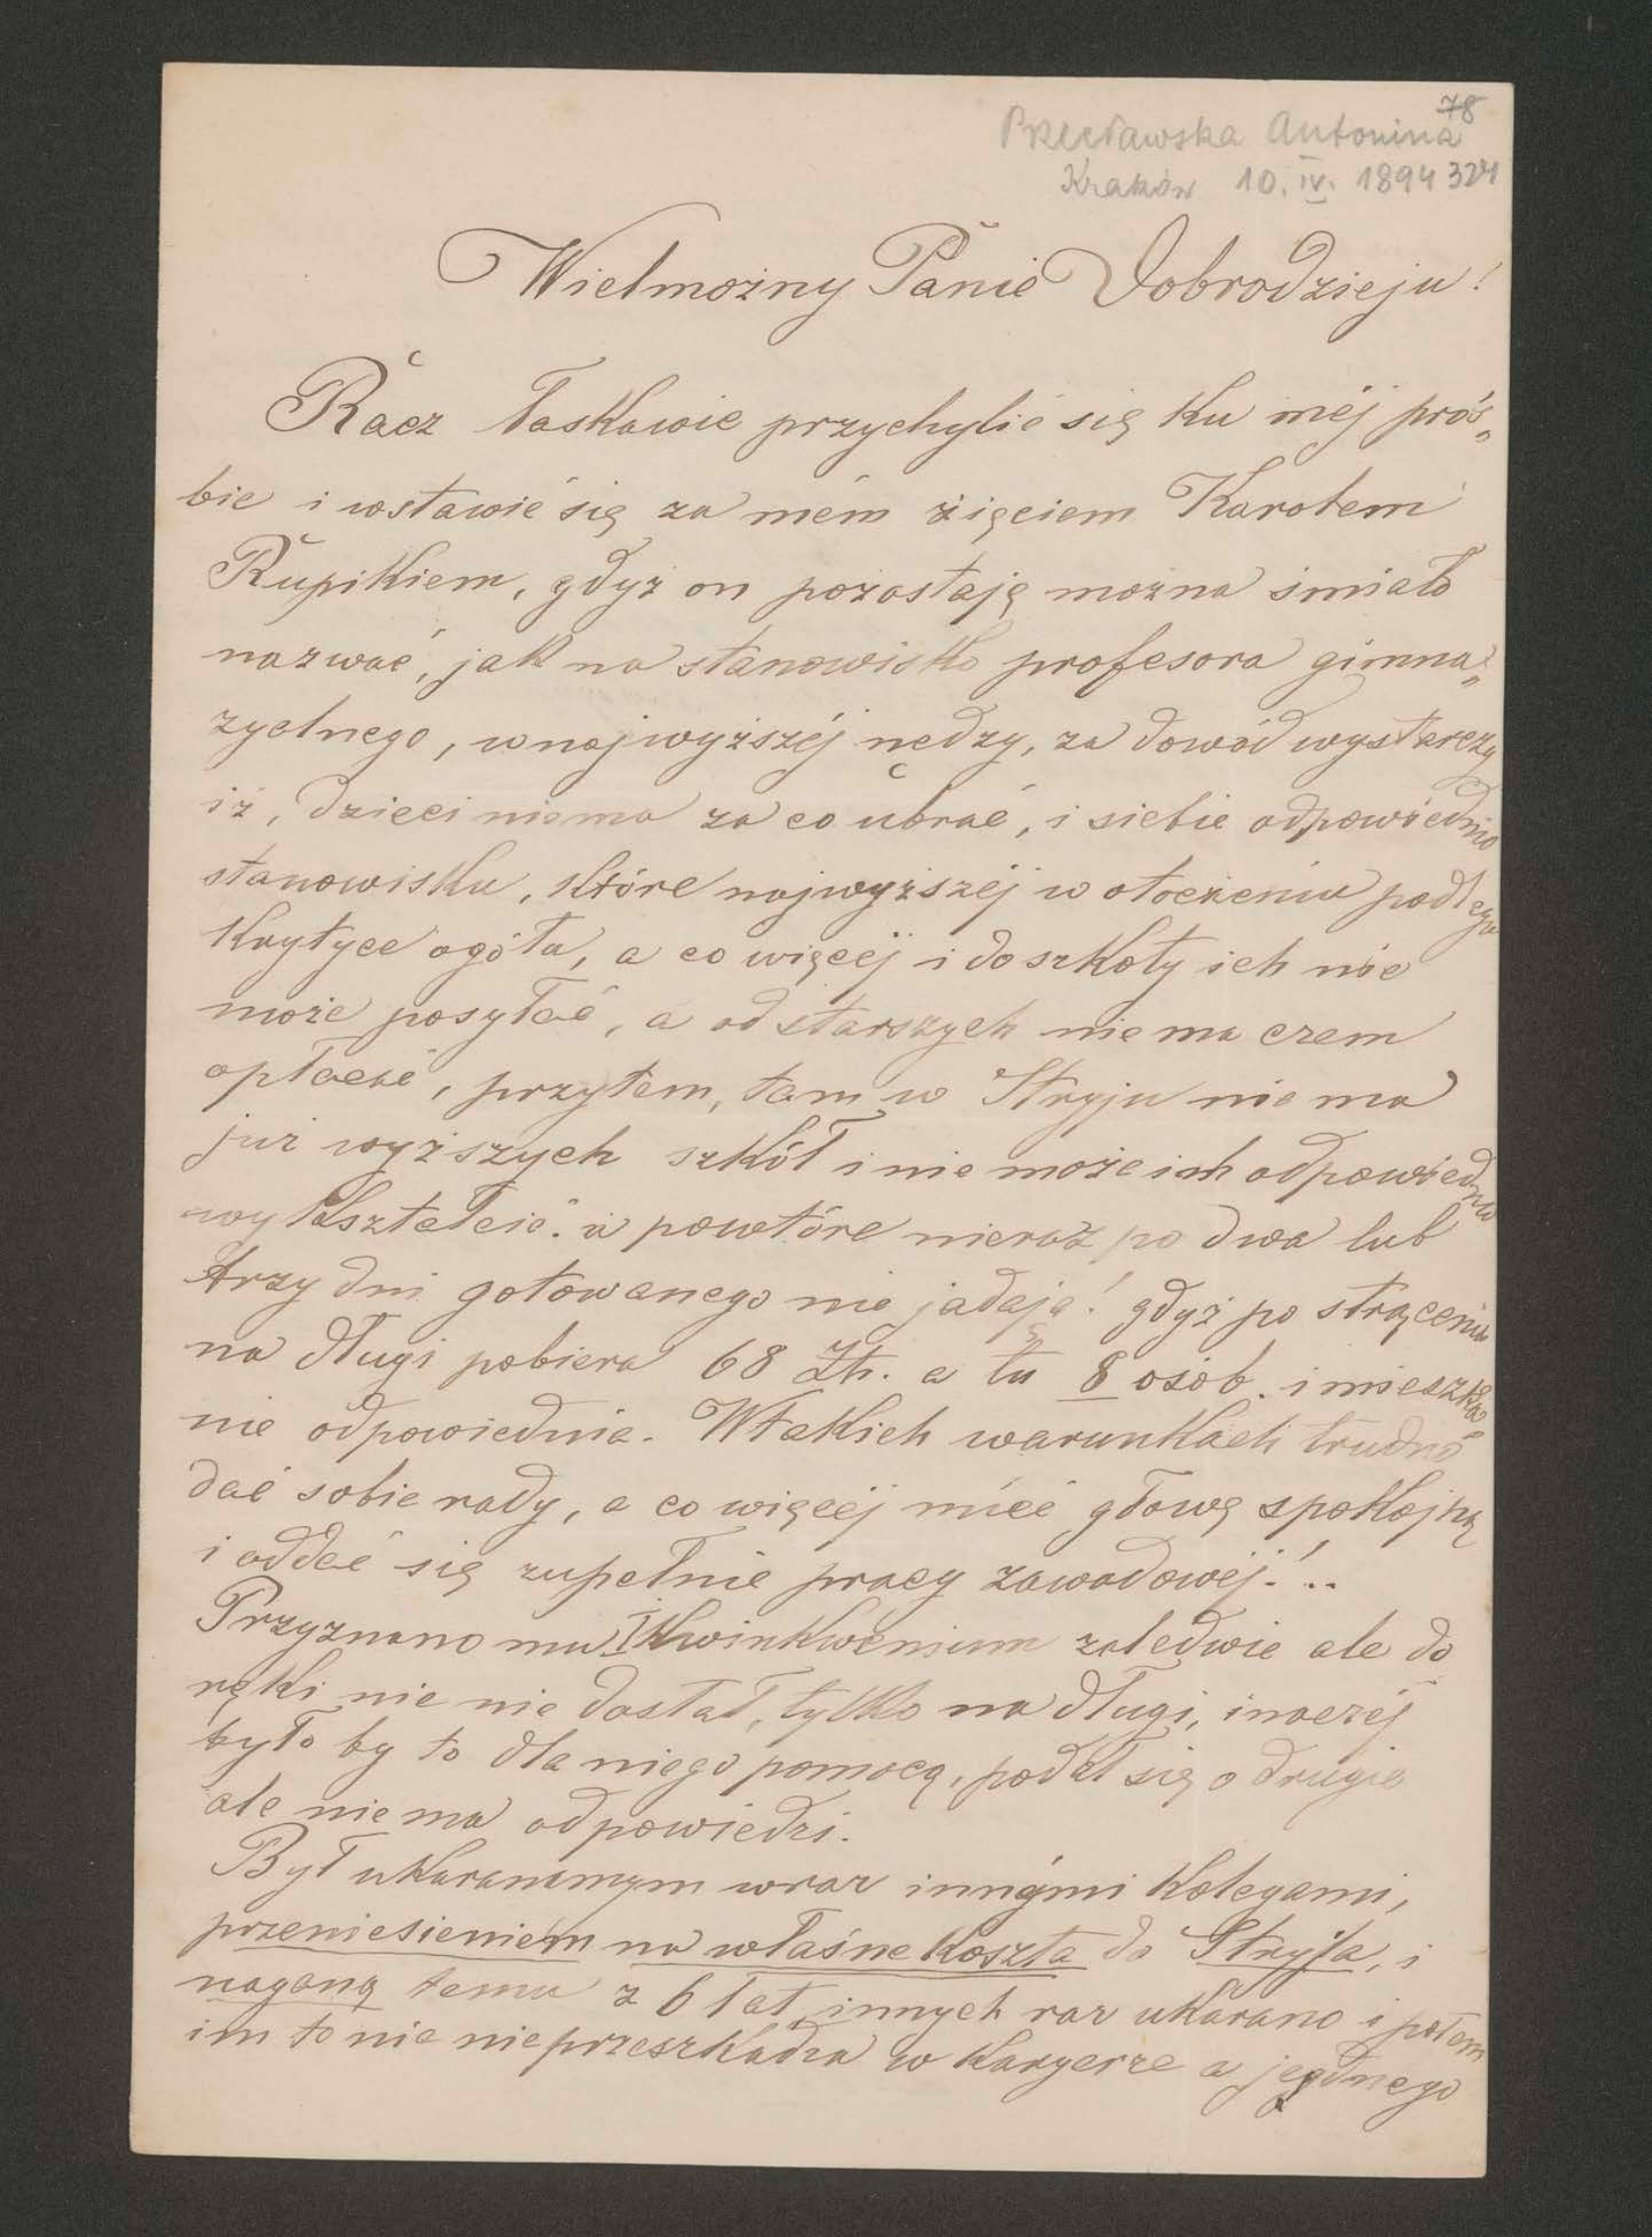 78
Przecławska Antonina
Kraków 10. IV. 1894 324
Wielmożny Panie Dobrodzieju!
Racz łaskawie przychylić się ku méj proś„
bie i wstawić się za mém zięciem Karolem
Rupikiem, gdyż on pozostaję można śmiało
nazwać, jak na stanowisko profesora gimna„
zyalnego, w najwyższéj nędzy, za dowód wystarczy
iż, dzieci niema za co ubrać, i siebie odpowiednio
stanowisku, które najwyższéj w otoczeniu podlega
Krytyce ogółu, a co więcéj i do szkoły ich nie
może posyłać, a od starszych nie ma czem
opłacać, przytem, tam w Stryju nie ma
już wyższych szkół i nie może ich odpowiednio
wykształcić. a powtóre nieraz po dwa lub
trzy dni gotowanego nie jadają! gdyż po strąceniu
na długi pobiera 68 Złr. a tu 8 osób. i mieszka
nie odpowiednie. W takich warunkach trudno
dać sobie rady, a co więcéj mieć głowę spokojną
i oddać się zupełnie pracy zawodowéj!..
Przyznano mu I Kwinkwenium zaledwie ale do
ręki nie nie dostał, tylko na długi, inaczéj
było by to dla niego pomocą, podał się o drugie
ale nie ma odpowiedzi.
Był ukaranmym wraz innymi Kolegami,
przeniesieniém na własne koszta do Stryja, i
naganą temu z 6 lat, innych raz ukarano i potem
im to nie nieprzeszkadza w Karyerze a jednego